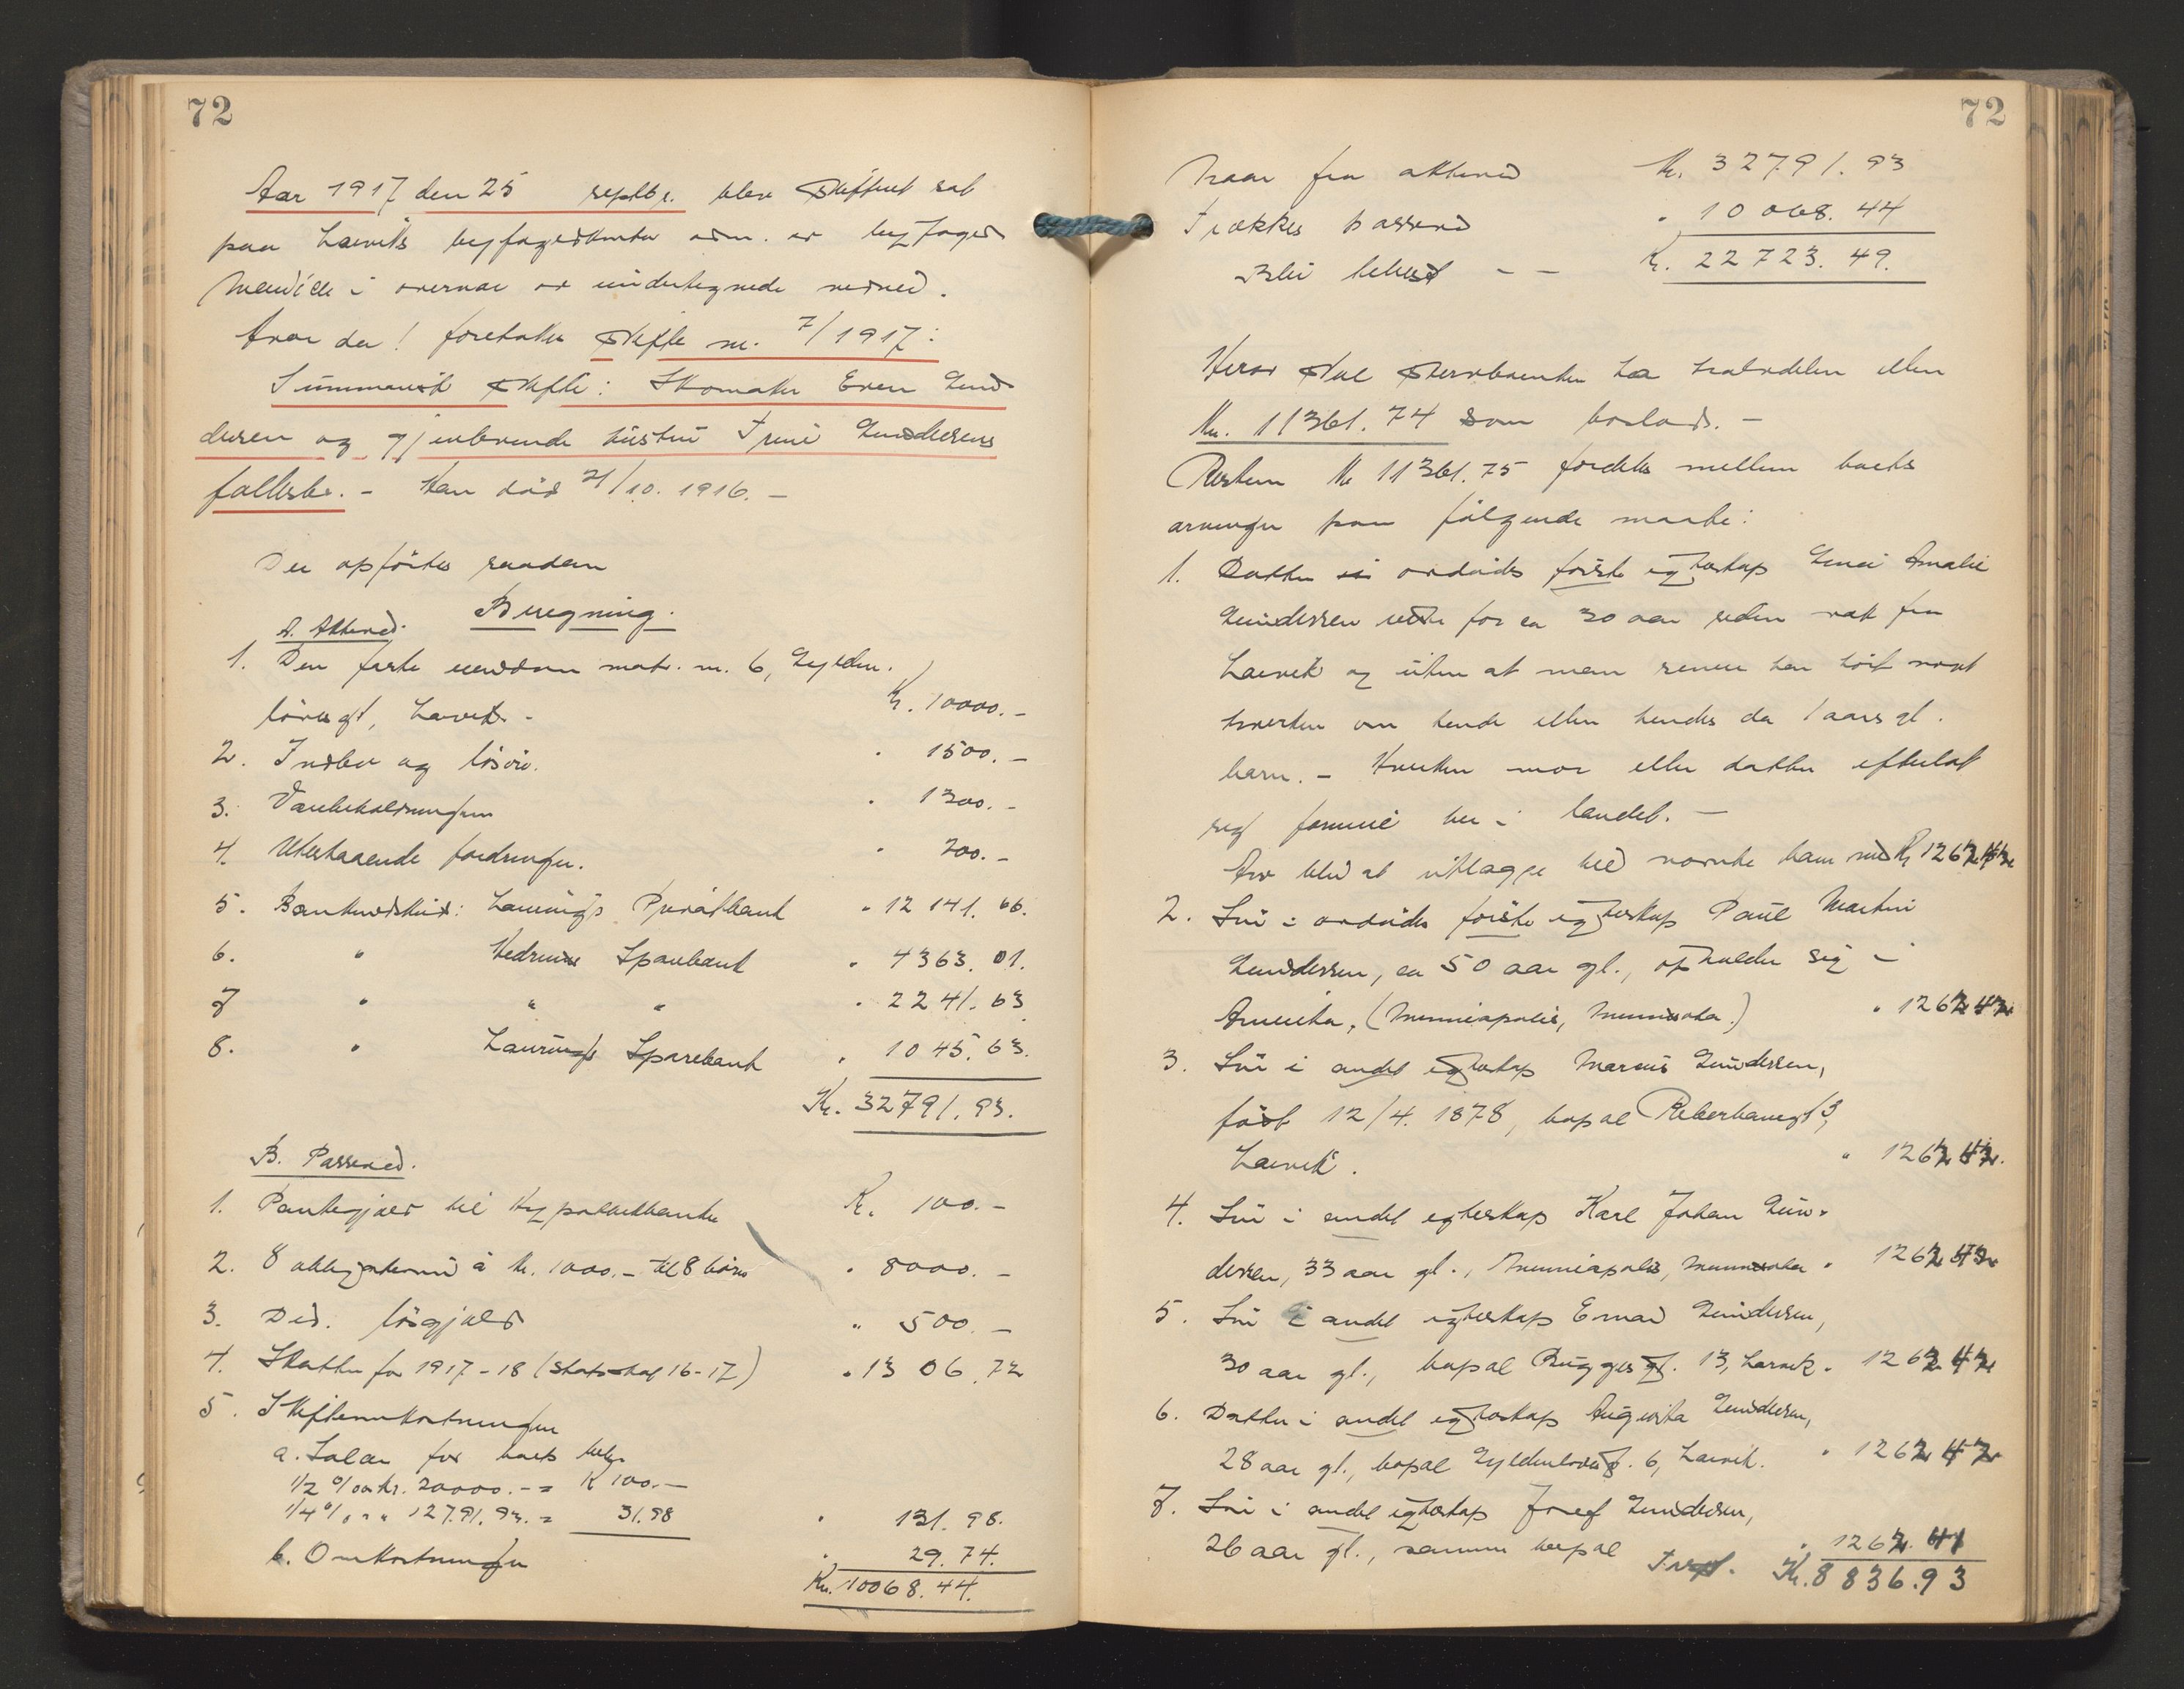 72
Aar 1917 den 25 septbr. blev skifteret sat
paa Larviks byfogedkontor adm. av byfoged
i overvær av undertegnede vidned.
Hvor da! foretokes Skifte nr. 7/1917:
Summarisk Skifte: Skomaker Even Gun-
dersen og gjenlevende hustru Trine Gundersens
fællesbo. – Han död 21/10. 1916. –
Der opförtes saadan
Beregning.
A. Aktiva.
1. Den faste eiendom matr. nr. 6, Gylden-
lövesgt, Larvik. – Kr. 10000.–
2. Indbo og lösöre. " 1500.–
3. Varebeholdningen " 1300.–
4. Utestaaende fordringer. " 200.–
5. Bankindskud: Laurvigs Privatbank " 12141.66.
6. " Hedrums Sparebank " 4363.01.
7 " " " " 2241.63
8. " Laurvigs Sparebank " 1045.63.
Kr. 32791.93.
B. Passiva.
1. Pantegjæld til Hypothekbanken Kr. 100.–
2. 8 obligationer à kr. 1000.– til 8 börn " 8000.–
3. Div. lösgjæld " 500.–
4. Skatter for 1917-18 (Statsskat 16-17) " 1306.72
5. Skifteomkostninger
a. Salær for boets beh.
1/2 % av kr. 20000.– = K 100.–
1/4 % " " " 12791.93. = 31.98 " 131.98.
b. Omkostninger " 29.74.
Kr. 10068.44.
72
Naar fra aktiva Kr. 32791.93
trækkes passiva " 10068.44
Blir behold – – Kr. 22723.49.
Herav skal stervboenken ha halvdelen eller
Kr. 11361.74 som boslod. –
Resten Kr 11361.75 fordeles mellem boets
arvinger paa fölgende maate:
1. Datter i avdödes förste egteskap Amalie
Gundersen reiste for ca 30 aar siden væk fra
Larvik og uten at man senere har hört noget
hverken om hende eller hendes da 1 aars gl.
barn. – Hverken mor eller datter efterlot
sig formue her i landet. –
Arv blir at utlægge til nævnte barn med Kr 1262.42
2. Sön i avdödes förste egteskap Paul Martin
Gundersen, ca 50 aar gl., opholder sig i
Amerika, (Minniapolis, Minnisota.) " 1262.42
3. Sön i andet egteskap Marius Gundersen,
födt 12/4. 1878, bopæl Reberbanegt 3,
Larvik. " 1262.42.
4. Sön i andet egteskap Karl Johan Gun-
dersen, 33 aar gl., Minniapolis, Minnisota " 1262.42
5. Sön i andet egteskap Gundersen,
30 aar gl., bopæl Bryggesgt. 13, Larvik. 1262.42
6. Datter i andet egteskap Gundersen,
28 aar gl., bopæl Gyldenlövesgt. 6, Larvik. " 1262.42
7. Sön i andet egteskap Josef Gundersen,
26 aar gl., samme bopæl " 1262.41
Trsp. Kr. 8836.93